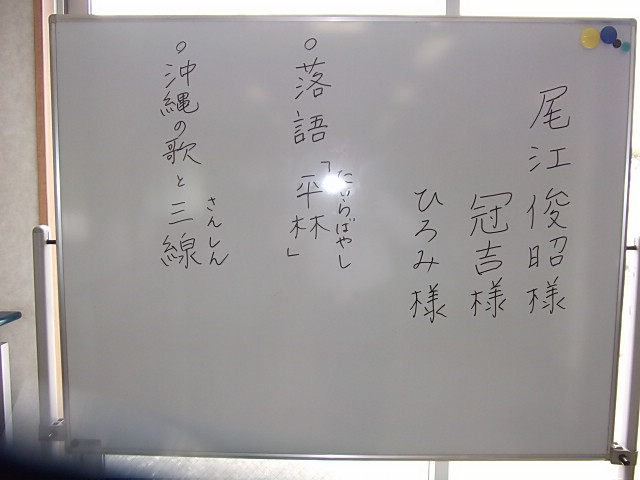 尾江俊昭様
冠吉様
ひろみ様
○落語「平林」
たいらばやし
○沖縄の歌と三線
さんしん